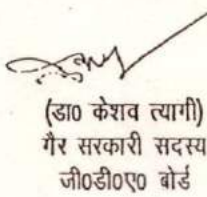 (डा० केशव त्यागी)
गैर सरकारी सदस्य
जी०डी०ए० बोर्ड